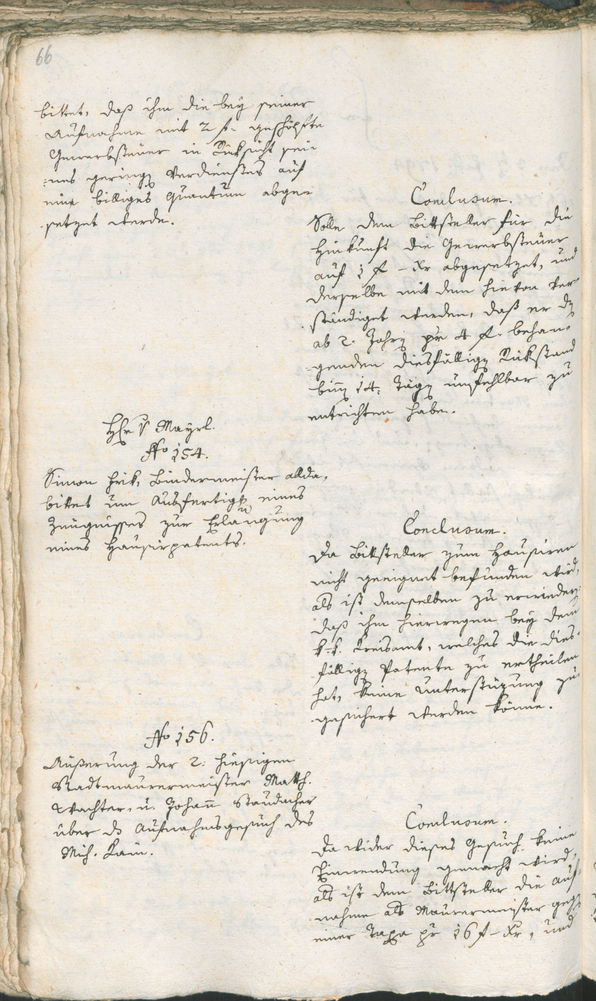 66
bittet, daß ihm die bey seiner
Aufnahme mit 2 f. geschöpfte
Gewerbsteuer in Rüksicht sei-
nes geringen Verdienstes auf
eine billiges Quantum abge-
setzet werde.
Conclusum.
Solle dem Bittsteller für die
Hinkunft die Gewerbsteuer
auf 1 f – Xr abgesetzet, und
derselbe mit dem hievon ver-
ständiget werden, daß er den
ab 2. Jahren pr 4 f. behan-
genden diesfälligen Rükstand
binnen 14. Tagen unfehlbar zu
entrichten habe.
Hr. v Mayrl.
No 154.
Simon Frik, Bindermeister allda,
bittet um Ausfertigung eines
Zeugnisses zur Erlangung
eines Hausirpatents.
Conclusum.
Da Bittsteller zum Hausiren
nicht geeignet befunden wird,
als ist demselben zu erwiedern,
daß ihm hierwegen bey dem
k. k. Kreisamt, welches die dies-
fälligen Patente zu ertheilen
hat, keine Unterstüzung zu-
gesichert werden könne.
No 156.
Äußerung der 2. hiesigen
Stadtmaurermeister Math.
Wachter, u Johann Staudacher
über das Aufnahmsgesuch des
Mich. Lain.
Conclusum.
Da wider dieses Gesuch keine
Einwendung gemacht wird,
als ist dem Bittsteller die Auf-
nahme als Maurermeister gegen
einer Taxa pr 16 f – Xr, und